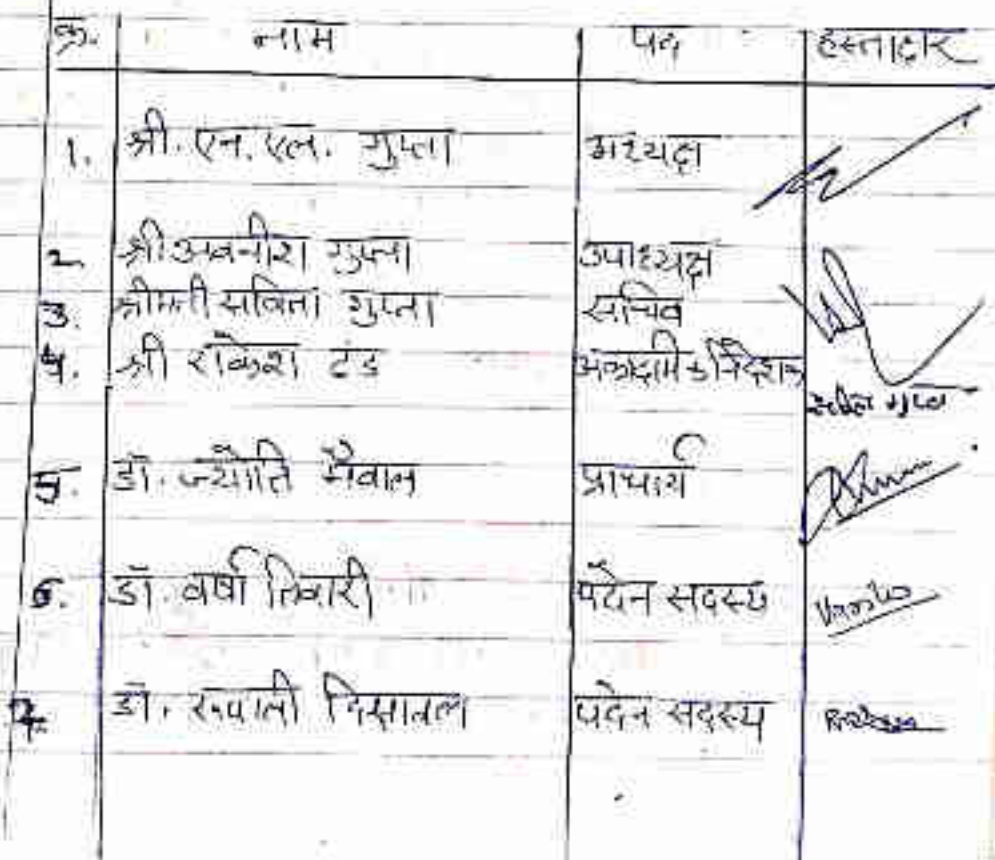 क्र. नाम पद हस्ताक्षर
1. श्री. एन. एल. गुप्ता अध्यक्ष
2. श्री. अवनीश गुप्ता उपाध्यक्ष
3. श्रीमती सविता गुप्ता सचिव
4. श्री राकेश टंड अकादमिक निदेशक
सविता गुप्ता
5. डॉ. ज्योति मेवाल प्राचार्य
6. डॉ. वर्षा तिवारी पदेन सदस्य Varsha
7. डॉ. रूपाली दिसावल पदेन सदस्य